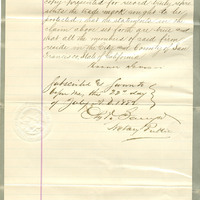 presented for record truly repre-
sents the trade mark sought to be
protected, that the statements in the
claim above set forth are true and
that all the members of said firm
reside in the City and County of San
Francisco State of California
Subscribed & Sworn to
before me this 25th day
of July A.D. 1882
Notary Public